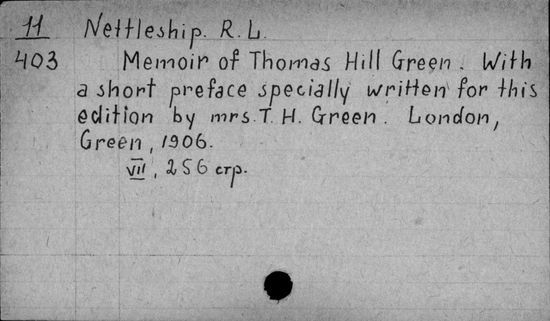 11 Nettleship. R. L.
403 Memoir of Thomas Hill Green. With
a short preface specially written for this
edition by mrs. T. H. Green. London,
Green, 1906.
VII, 256 стр.